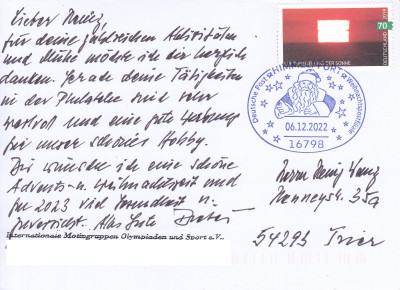 Lieber Heinz,
für deine zahlreichen Aktivitäten
und Mühe möchte ich dir herzlich
danken. Gerade deine Tätigkeiten
in der Philatelie sind sehr
wertvoll und eine gute Werbung
für unser schönes Hobby.
Dir wünsche ich eine schöne
Advents- u. Weihnachtszeit und
für 2023 viel Gesundheit u.
Zuversicht. Alles Gute Dieter
Internationale Motivgruppen Olympiaden und Sport e.V.,
70
DEUTSCHLAND
DER SONNE
Deutsche Post HIMMELPFORT Weihnachtspostfiliale
06.12.2022
16798
Herrn Heinz
35a
54295 Trier